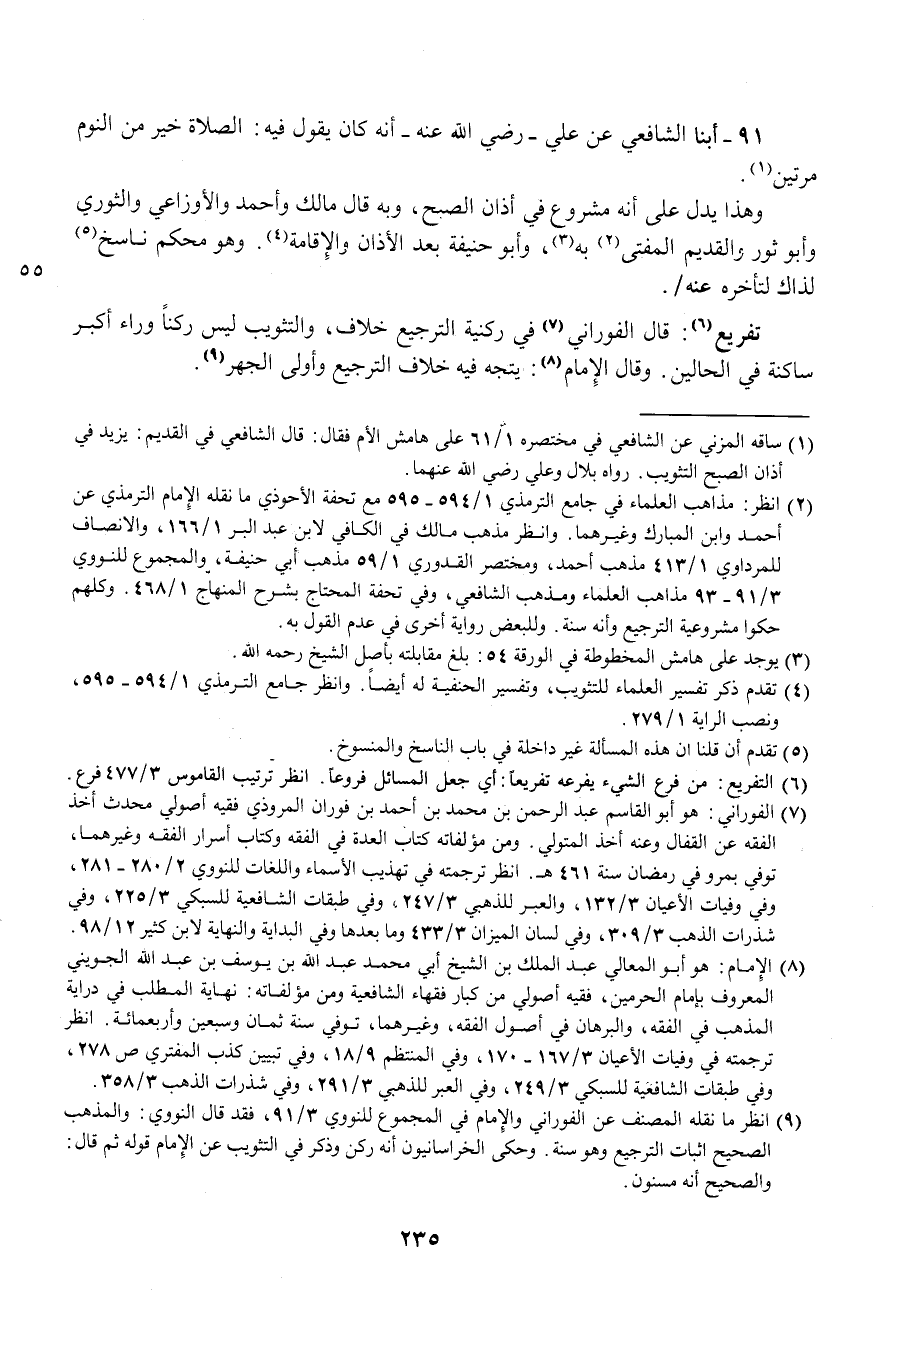 ٩١ ـ أبنا الشافعي عن علي ـ رضي الله عنه ـ أنه كان يقول فيه: الصلاة خير من النوم
مرتين(١).
وهذا يدل على أنه مشروع في أذان الصبح، وبه قال مالك وأحمد والأوزاعي والثوري
وأبو ثور والقديم المفتى(٢) به(٣)، وأبو حنيفة بعد الأذان والإقامة(٤). وهو محكم ناسخ(٥)
٥٥
لذاك لتأخره عنه/.
تفريع(٦): قال الفوراني(٧) في ركنية الترجيع خلاف، والتثويب ليس ركناً وراء أكبر
ساكنة في الحالين. وقال الإمام(٨): يتجه فيه خلاف الترجيع وأولى الجهر(٩).
(١) ساقه المزني عن الشافعي في مختصره ٦١/١ على هامش الأم فقال: قال الشافعي في القديم: يزيد في
أذان الصبح التثويب. رواه بلال وعلي رضي الله عنهما.
(٢) انظر: مذاهب العلماء في جامع الترمذي ٥٩٤/١ ـ ٥٩٥ مع تحفة الأحوذي ما نقله الإمام الترمذي عن
أحمد وابن المبارك وغيرهما. وانظر مذهب مالك في الكافي لابن عبد البر ١٦٦/١، والانصاف
للمرداوي ٤١٣/١ مذهب أحمد، ومختصر القدوري ٥٩/١ مذهب أبي حنيفة، والمجموع للنووي
٩١/٣ ـ ٩٣ مذاهب العلماء ومذهب الشافعي، وفي تحفة المحتاج بشرح المنهاج ٤٦٨/١. وكلهم
حكوا مشروعية الترجيع وأنه سنة. وللبعض رواية أخرى في عدم القول به.
(٣) يوجد على هامش المخطوطة في الورقة ٥٤: بلغ مقابلته بأصل الشيخ رحمه الله.
(٤) تقدم ذكر تفسير العلماء للتثويب، وتفسير الحنفية له أيضاً. وانظر جامع الترمذي ٥٩٤/١ ـ ٥٩٥،
ونصب الراية ٢٧٩/١.
(٥) تقدم أن قلنا ان هذه المسألة غير داخلة في باب الناسخ والمنسوخ.
(٦) التفريع: من فرع الشيء يفرعه تفريعاً: أي جعل المسائل فروعاً. انظر ترتيب القاموس ٤٧٧/٣ فرع.
(٧) الفوراني: هو أبو القاسم عبد الرحمن بن محمد بن أحمد بن فوران المروذي فقيه أصولي محدث أخذ
الفقه عن القفال وعنه أخذ المتولي. ومن مؤلفاته كتاب العدة في الفقه وكتاب أسرار الفقه وغيرهما،
توفي بمرو في رمضان سنة ٤٦١ هـ. انظر ترجمته في تهذيب الأسماء واللغات للنووي ٢٨٠/٢ ـ ٢٨١،
وفي وفيات الأعيان ١٣٢/٣، والعبر للذهبي ٢٤٧/٣، وفي طبقات الشافعية للسبكي ٢٢٥/٣، وفي
شذرات الذهب ٣٠٩/٣، وفي لسان الميزان ٤٣٣/٣ وما بعدها وفي البداية والنهاية لابن كثير ٩٨/١٢.
(٨) الإمام: هو أبو المعالي عبد الملك بن الشيخ أبي محمد عبد الله بن يوسف بن عبد الله الجويني
المعروف بإمام الحرمين، فقيه أصولي من كبار فقهاء الشافعية ومن مؤلفاته: نهاية المطلب في دراية
المذهب في الفقه، والبرهان في أصول الفقه، وغيرهما، توفي سنة ثمان وسبعين وأربعمائة. انظر
ترجمته في وفيات الأعيان ١٦٧/٣ ـ ١٧٠، وفي المنتظم ١٨/٩، وفي تبيين كذب المفتري ص ٢٧٨،
وفي طبقات الشافعية للسبكي ٢٤٩/٣، وفي العبر للذهبي ٢٩١/٣، وفي شذرات الذهب ٣٥٨/٣.
(٩) انظر ما نقله المصنف عن الفوراني والإمام في المجموع للنووي ٩١/٣، فقد قال النووي: والمذهب
الصحيح اثبات الترجيع وهو سنة. وحكى الخراسانيون أنه ركن وذكر في التثويب عن الإمام قوله ثم قال:
والصحيح أنه مسنون.
٢٣٥